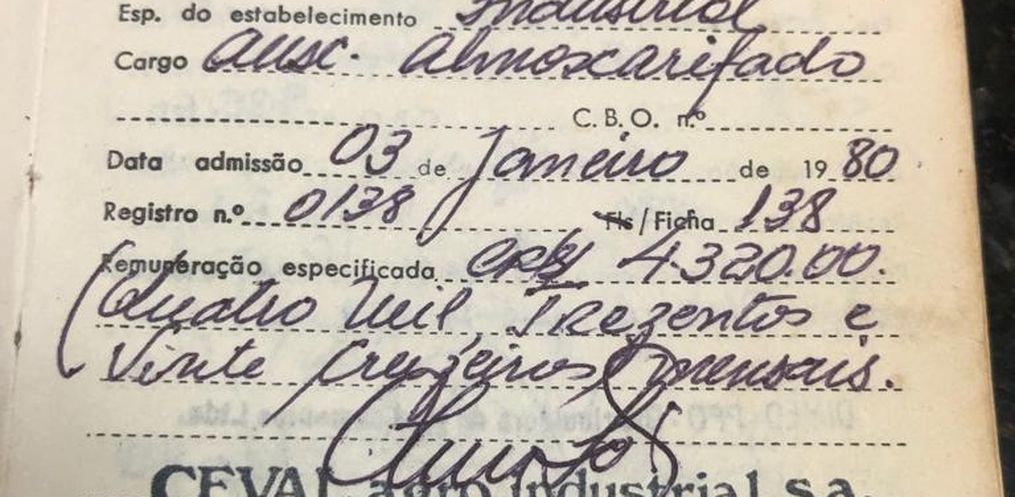 Esp. do estabelecimento Industrial
Cargo Aux. Almoxarifado
C.B.O. n.º
Data admissão 03 de Janeiro de 1980
Registro n.º 0138 Fls/Ficha 138
Remuneração especificada CR$ 4.320.00.
(Quatro Mil, Trezentos e
Vinte Cruzeiros) mensais.
CEVAL agro industrial s.a.